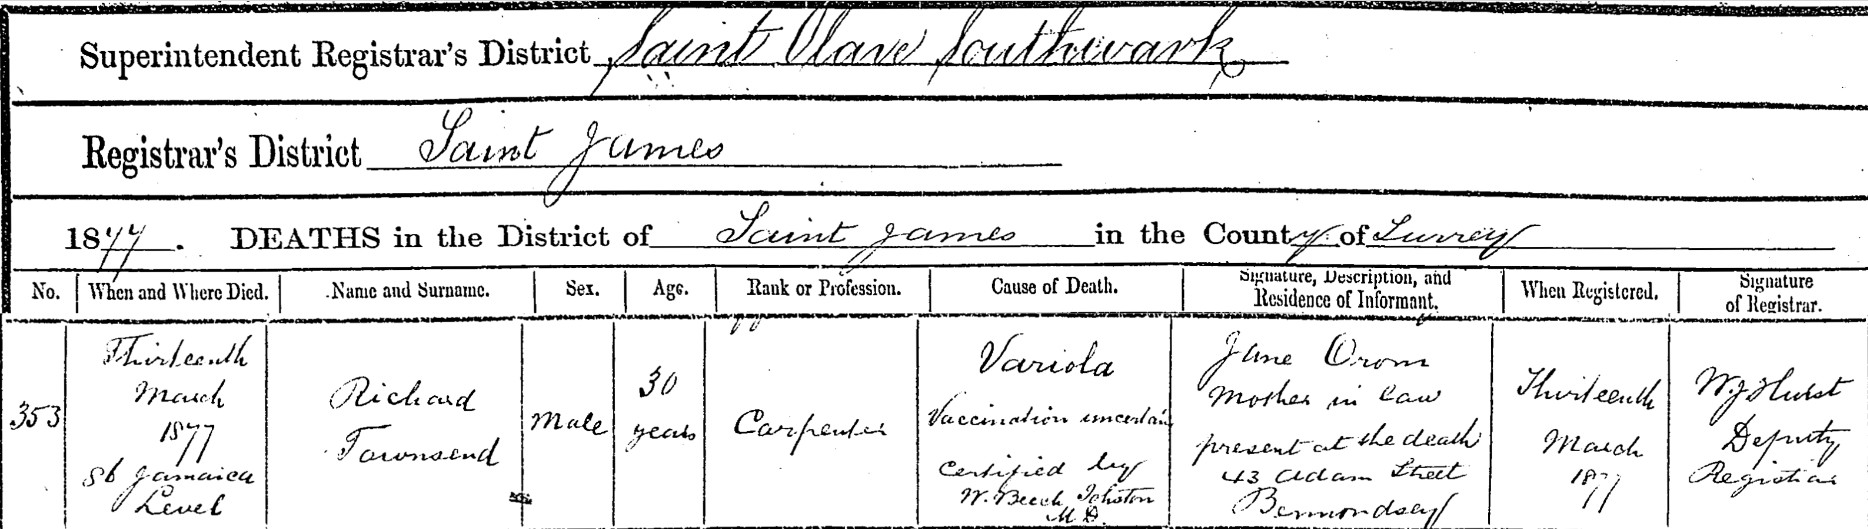 Superintendent Registrar's District Saint Olave Southwark
Registrar's District Saint James
1877. DEATHS in the District of Saint James in the County of Surrey
No. When and Where Died. Name and Surname. Sex. Age. Rank or Profession. Cause of Death. Signature, Description, and Residence of Informant. When Registered. Signature of Registrar.
353
Thirteenth
March
1877
Jamaica
Level
Richard
Townsend
Male
30
years
Carpenter
Variola
Vaccination uncertain
Certified by
W. Beech Johston
M.D.
Jane Orom
Mother in law
present at the death
43 Adam Street
Bermondsey
Thirteenth
March
1877
W J Hurst
Deputy
Registrar